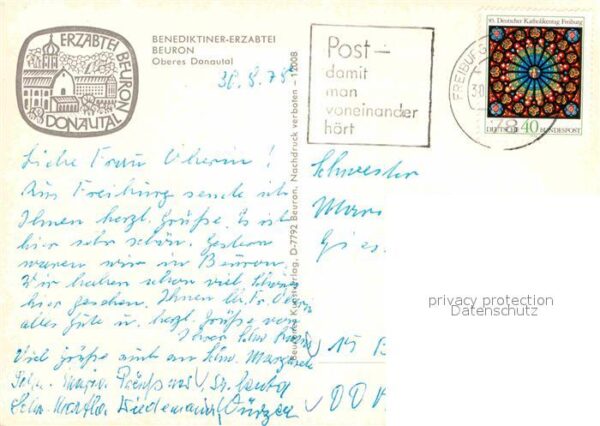 ERZABTEI BEURON
DONAUTAL
BENEDIKTINER-ERZABTEI
BEURON
Oberes Donautal
30.8.78
Post –
damit
man
voneinander
hört
FREIBURG
30.
78
85. Deutscher Katholikentag Freiburg
DEUTSCHE BUNDESPOST
40
Liebe Frau Oberin!
Aus Freiburg sende ich
Ihnen herzl. Grüße. Es ist
hier sehr schön. Gestern
waren wir in Beuron.
Wir haben schon viel Schönes
hier gesehen. Ihnen lb. Fr. Oberin
alles Gute u. herzl. Grüße von
Ihrer Schw.
Viel Grüße auch an Schw. Margarete
Schw. Maria
Schw. Martha Wiedemann
Beuroner Kunstverlag, D-7792 Beuron, Nachdruck verboten – 12008
Schwester
Mar
Gies
DD
privacy protection
Datenschutz